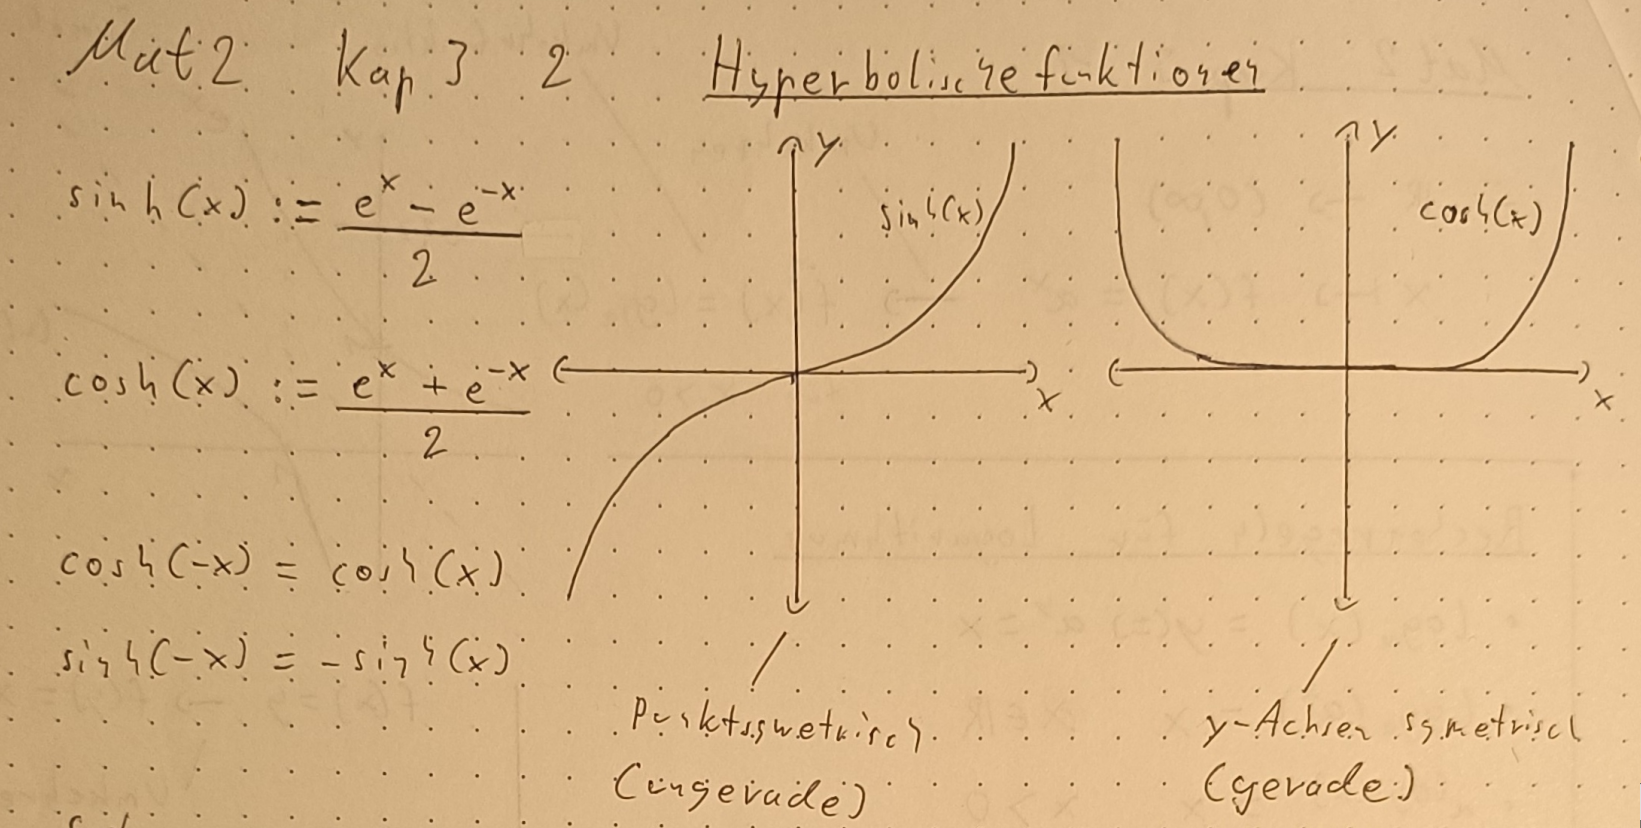 Mat 2 Kap 3 2 Hyperbolische funktionen
sinh(x) := (e^x - e^-x) / 2
y
sinh(x)
x
y
cosh(x)
x
cosh(x) := (e^x + e^-x) / 2
cosh(-x) = cosh(x)
sinh(-x) = -sinh(x)
Punktsymetrisch
(ungerade)
y-Achsen symetrisch
(gerade)